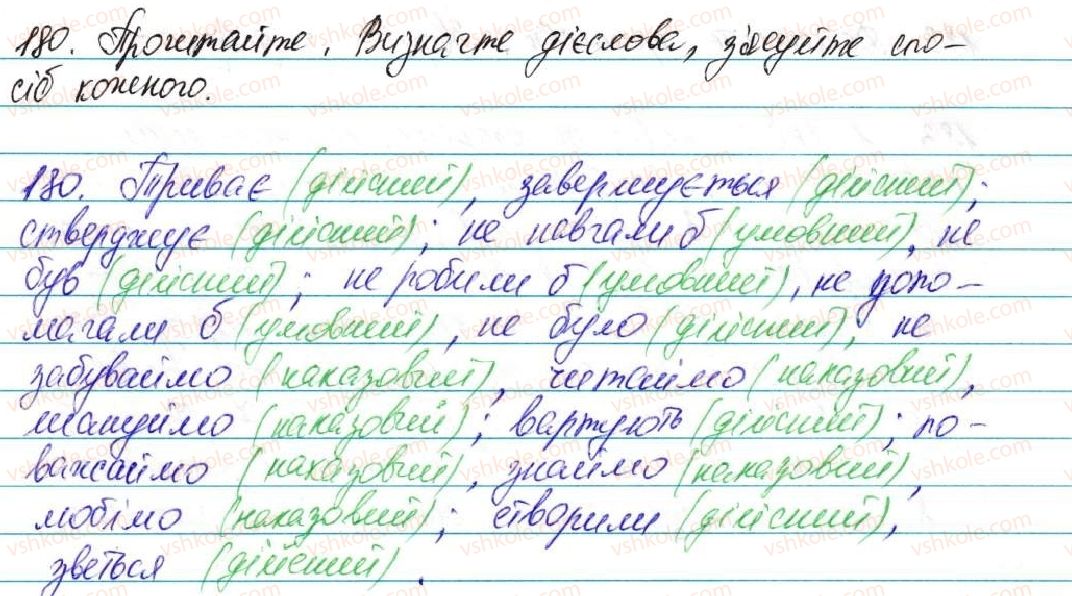 180. Прочитайте. Визначте дієслова, з'ясуйте спо-
сіб кожного.
180. Триває (дійсний), завершується (дійсний);
стверджує (дійсний); не повчали б (умовний), не
був (дійсний); не робили б (умовний), не допо-
магали б (умовний), не було (дійсний), не
забуваймо (наказовий), читаймо (наказовий),
шануймо (наказовий); вартують (дійсний); по-
важаймо (наказовий), знаймо (наказовий),
любімо (наказовий); створили (дійсний),
зветься (дійсний).